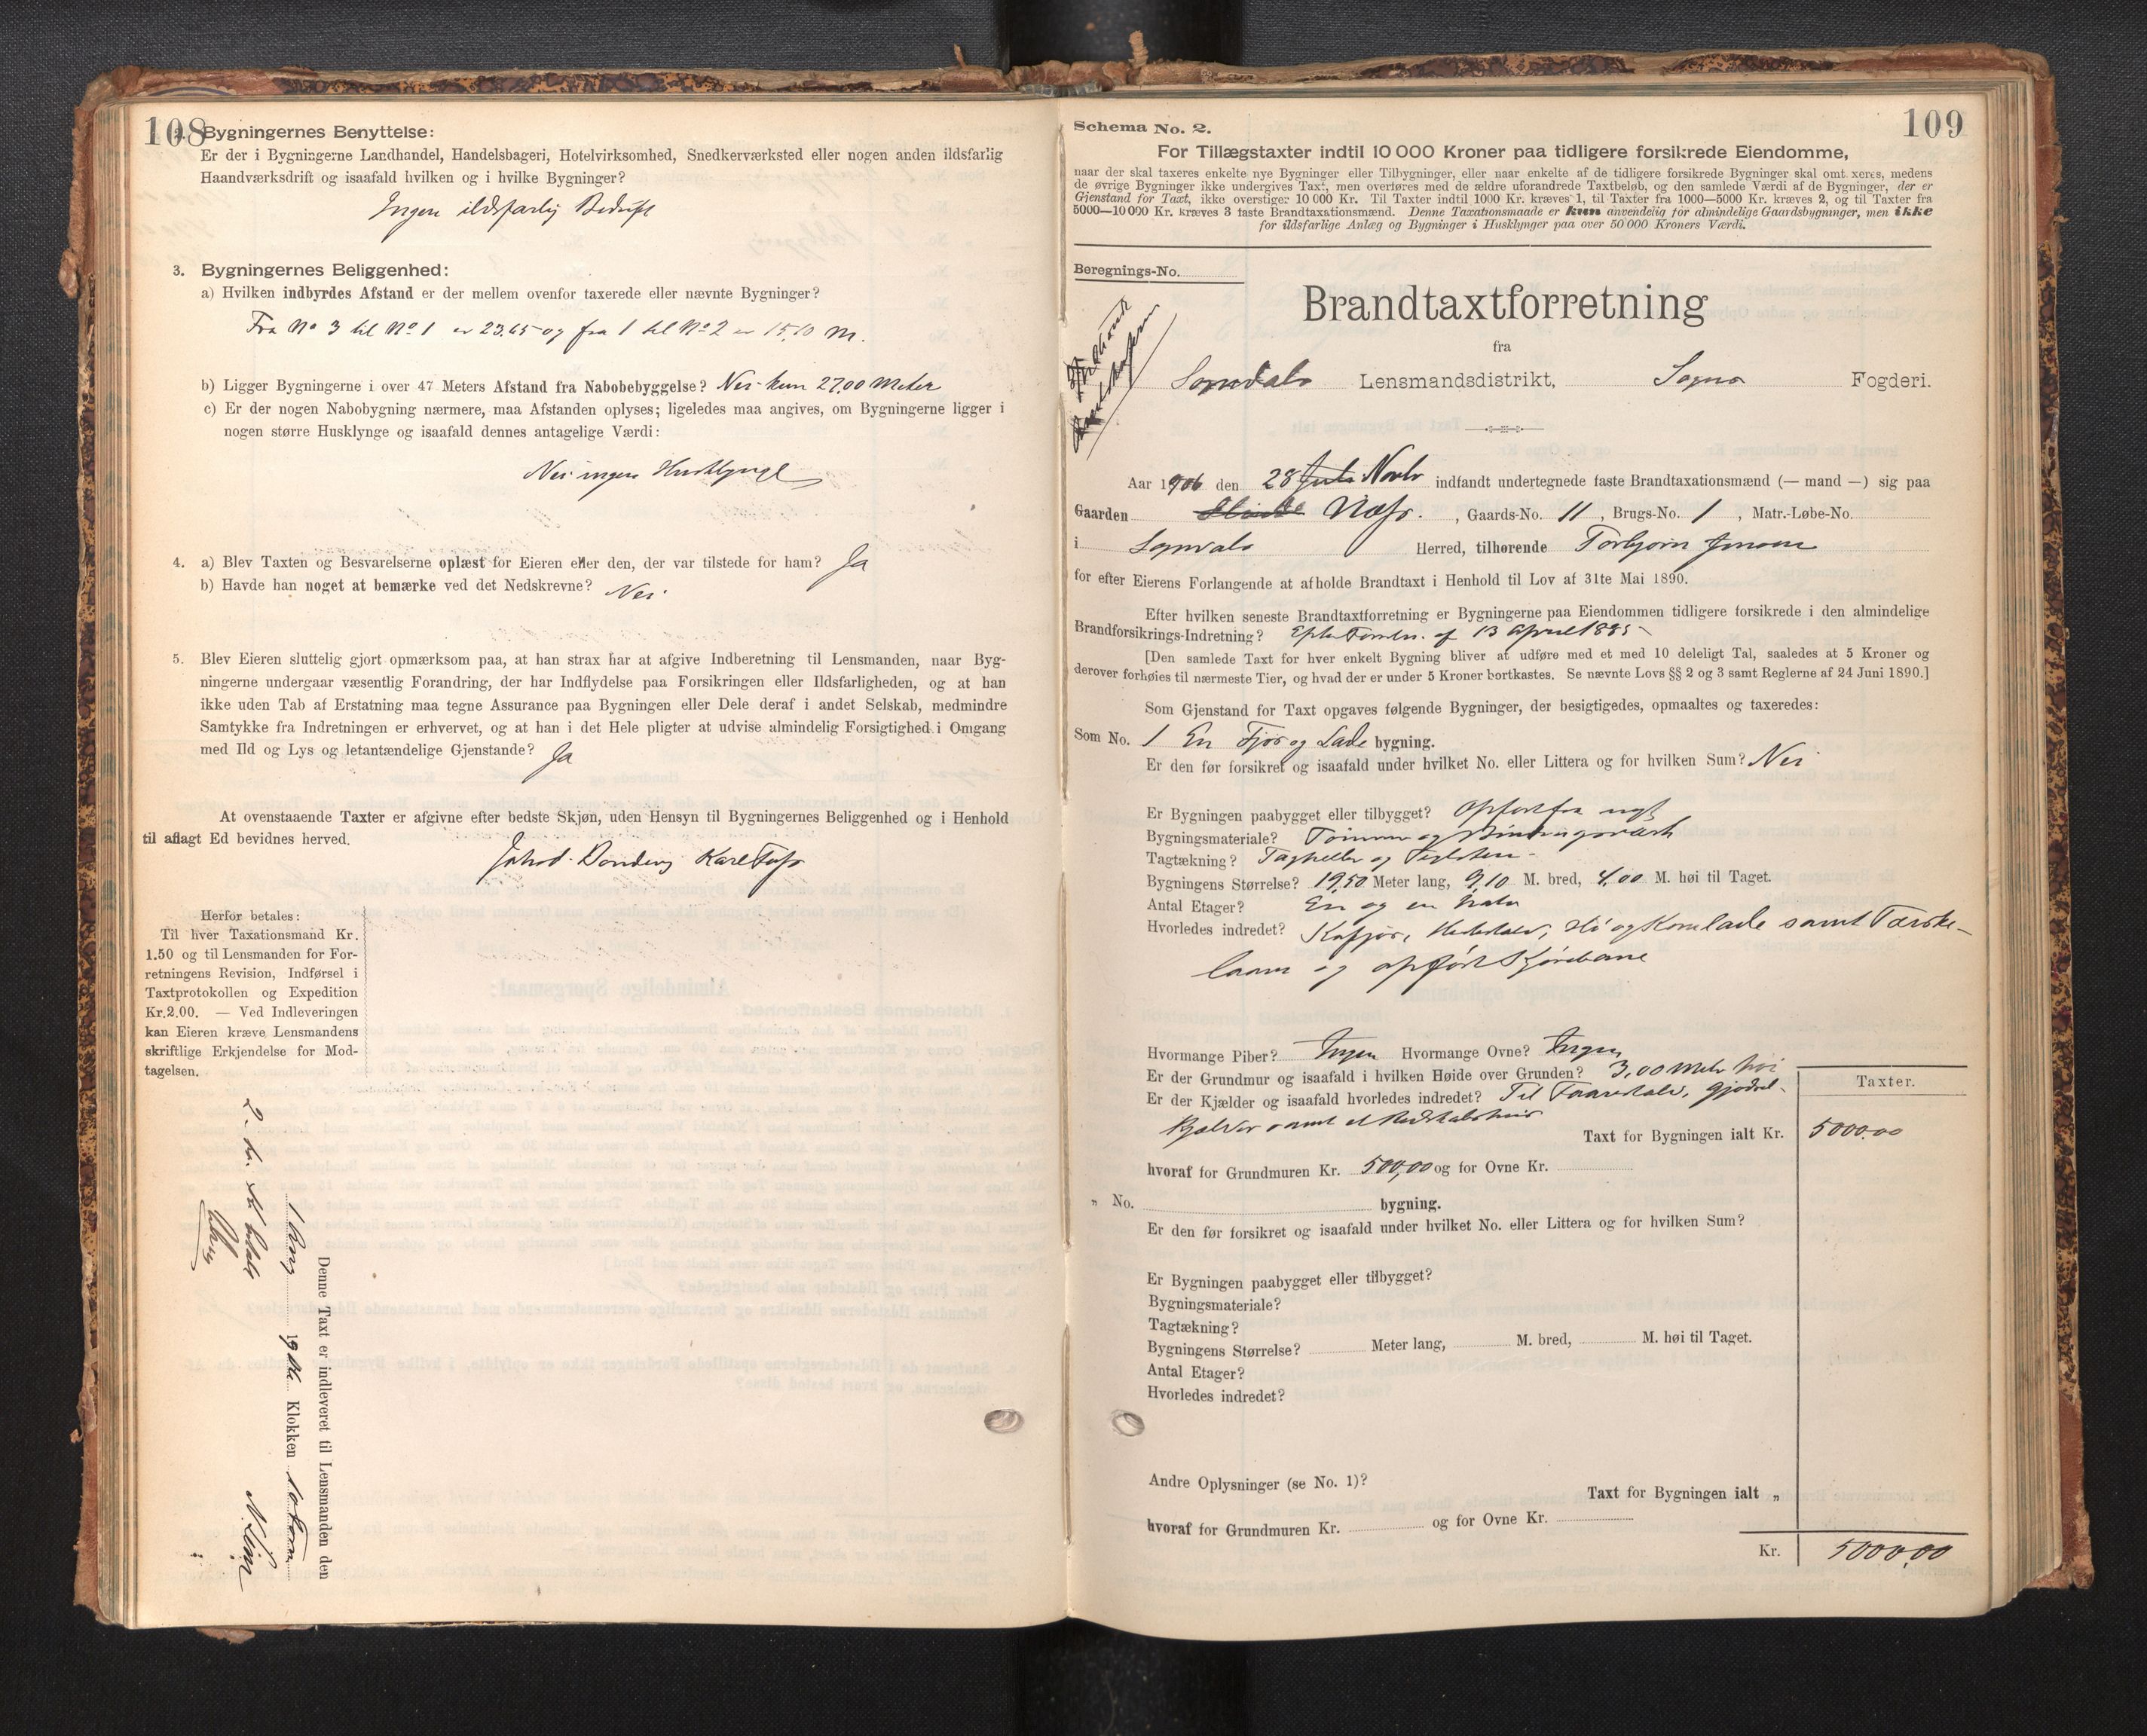 108
2. Bygningernes Benyttelse:
Er der i Bygningerne Landhandel, Handelsbageri, Hotelvirksomhed, Snedkerværksted eller nogen anden ildsfarlig
Haandværksdrift og isaafald hvilken og i hvilke Bygninger?
Ingen ildsfarlig Bedrift
3. Bygningernes Beliggenhed:
a) Hvilken indbyrdes Afstand er der mellem ovenfor taxerede eller nævnte Bygninger?
Fra No 3 til No 1 er 23.65 og fra 1 til No 2 er 15,10 M.
b) Ligger Bygningerne i over 47 Meters Afstand fra Nabobebyggelse? Nei kun 27,00 Meter
c) Er der nogen Nabobygning nærmere, maa Afstanden oplyses; ligeledes maa angives, om Bygningerne ligger i
nogen større Husklynge og isaafald dennes antagelige Værdi:
Nei ingen Husklynge
4. a) Blev Taxten og Besvarelserne oplæst for Eieren eller den, der var tilstede for ham? Ja
b) Havde han noget at bemærke ved det Nedskrevne? Nei
5. Blev Eieren sluttelig gjort opmærksom paa, at han strax har at afgive Indberetning til Lensmanden, naar Byg-
ningerne undergaar væsentlig Forandring, der har Indflydelse paa Forsikringen eller Ildsfarligheden, og at han
ikke uden Tab af Erstatning maa tegne Assurance paa Bygningen eller Dele deraf i andet Selskab, medmindre
Samtykke fra Indretningen er erhvervet, og at han i det Hele pligter at udvise almindelig Forsigtighed i Omgang
med Ild og Lys og letantændelige Gjenstande? Ja
At ovenstaaende Taxter er afgivne efter bedste Skjøn, uden Hensyn til Bygningernes Beliggenhed og i Henhold
til aflagt Ed bevidnes herved.
Karl
Herfor betales:
Til hver Taxationsmand Kr.
1.50 og til Lensmanden for For-
retningens Revision, Indførsel i
Taxtprotokollen og Expedition
Kr.2.00. — Ved Indleveringen
kan Eieren kræve Lensmandens
skriftlige Erkjendelse for Mod-
tagelsen.
Denne Taxt er indleveret til Lensmanden den
1 19 Klokken 10
2 kr. betalt
109
Schema No. 2.
For Tillægstaxter indtil 10 000 Kroner paa tidligere forsikrede Eiendomme,
naar der skal taxeres enkelte nye Bygninger eller Tilbygninger, eller naar enkelte af de tidligere forsikrede Bygninger skal omtaxeres, medens
de øvrige Bygninger ikke undergives Taxt, men overføres med de ældre uforandrede Taxtbeløb, og den samlede Værdi af de Bygninger, der er
Gjenstand for Taxt, ikke overstiger 10 000 Kr. Til Taxter indtil 1000 Kr. kræves 1, til Taxter fra 1000—5000 Kr. kræves 2, og til Taxter fra
5000—10 000 Kr. kræves 3 faste Brandtaxationsmænd. Denne Taxationsmaade er kun anvendelig for almindelige Gaardsbygninger, men ikke
for ildsfarlige Anlæg og Bygninger i Husklynger paa over 50 000 Kroners Værdi.
Beregnings-No.
Brandtaxtforretning
fra
Sogndals Lensmandsdistrikt, Sogns Fogderi.
Aar 1906 den 28 Juli Novbr indfandt undertegnede faste Brandtaxationsmænd (— mand —) sig paa
Gaarden Næs. , Gaards-No. 11 , Brugs-No. 1 , Matr.-Løbe-No.
i Sogndals Herred, tilhørende Torbjørn
for efter Eierens Forlangende at afholde Brandtaxt i Henhold til Lov af 31te Mai 1890.
Efter hvilken seneste Brandtaxtforretning er Bygningerne paa Eiendommen tidligere forsikrede i den almindelige
Brandforsikrings-Indretning? Efter Forretn. af 13 April 1885
[Den samlede Taxt for hver enkelt Bygning bliver at udføre med et med 10 deleligt Tal, saaledes at 5 Kroner og
derover forhøies til nærmeste Tier, og hvad der er under 5 Kroner bortkastes. Se nævnte Lovs §§ 2 og 3 samt Reglerne af 24 Juni 1890.]
Som Gjenstand for Taxt opgaves følgende Bygninger, der besigtigedes, opmaaltes og taxeredes:
Som No. 1 En Fjøs og Lade bygning.
Er den før forsikret og isaafald under hvilket No. eller Littera og for hvilken Sum? Nei
Er Bygningen paabygget eller tilbygget? Opført fra nyt
Bygningsmateriale? Tømmer og Bindingsværk
Tagtækning? Tagheller og Teglsten
Bygningens Størrelse? 19,50 Meter lang, 9,10 M. bred, 4,00 M. høi til Taget.
Antal Etager? En og en halv
Hvorledes indredet? Kofjøs, Hestestald, Hø og Kornlade samt Tærske-
laave og opført Kjørebane
Hvormange Piber? Ingen Hvormange Ovne? Ingen
Er der Grundmur og isaafald i hvilken Høide over Grunden? 3,00 Meter høi
Er der Kjælder og isaafald hvorledes indredet? Til Faarestald, Gjødsel-
kjælder samt et Redskabshus
Taxter.
Taxt for Bygningen ialt Kr. 5000,00
hvoraf for Grundmuren Kr. 500,00 og for Ovne Kr.
„ No. bygning.
Er den før forsikret og isaafald under hvilket No. eller Littera og for hvilken Sum?
Er Bygningen paabygget eller tilbygget?
Bygningsmateriale?
Tagtækning?
Bygningens Størrelse? Meter lang, M. bred, M. høi til Taget.
Antal Etager?
Hvorledes indredet?
Andre Oplysninger (se No. 1)?
Taxt for Bygningen ialt „
hvoraf for Grundmuren Kr. og for Ovne Kr.
Kr. 5000,00